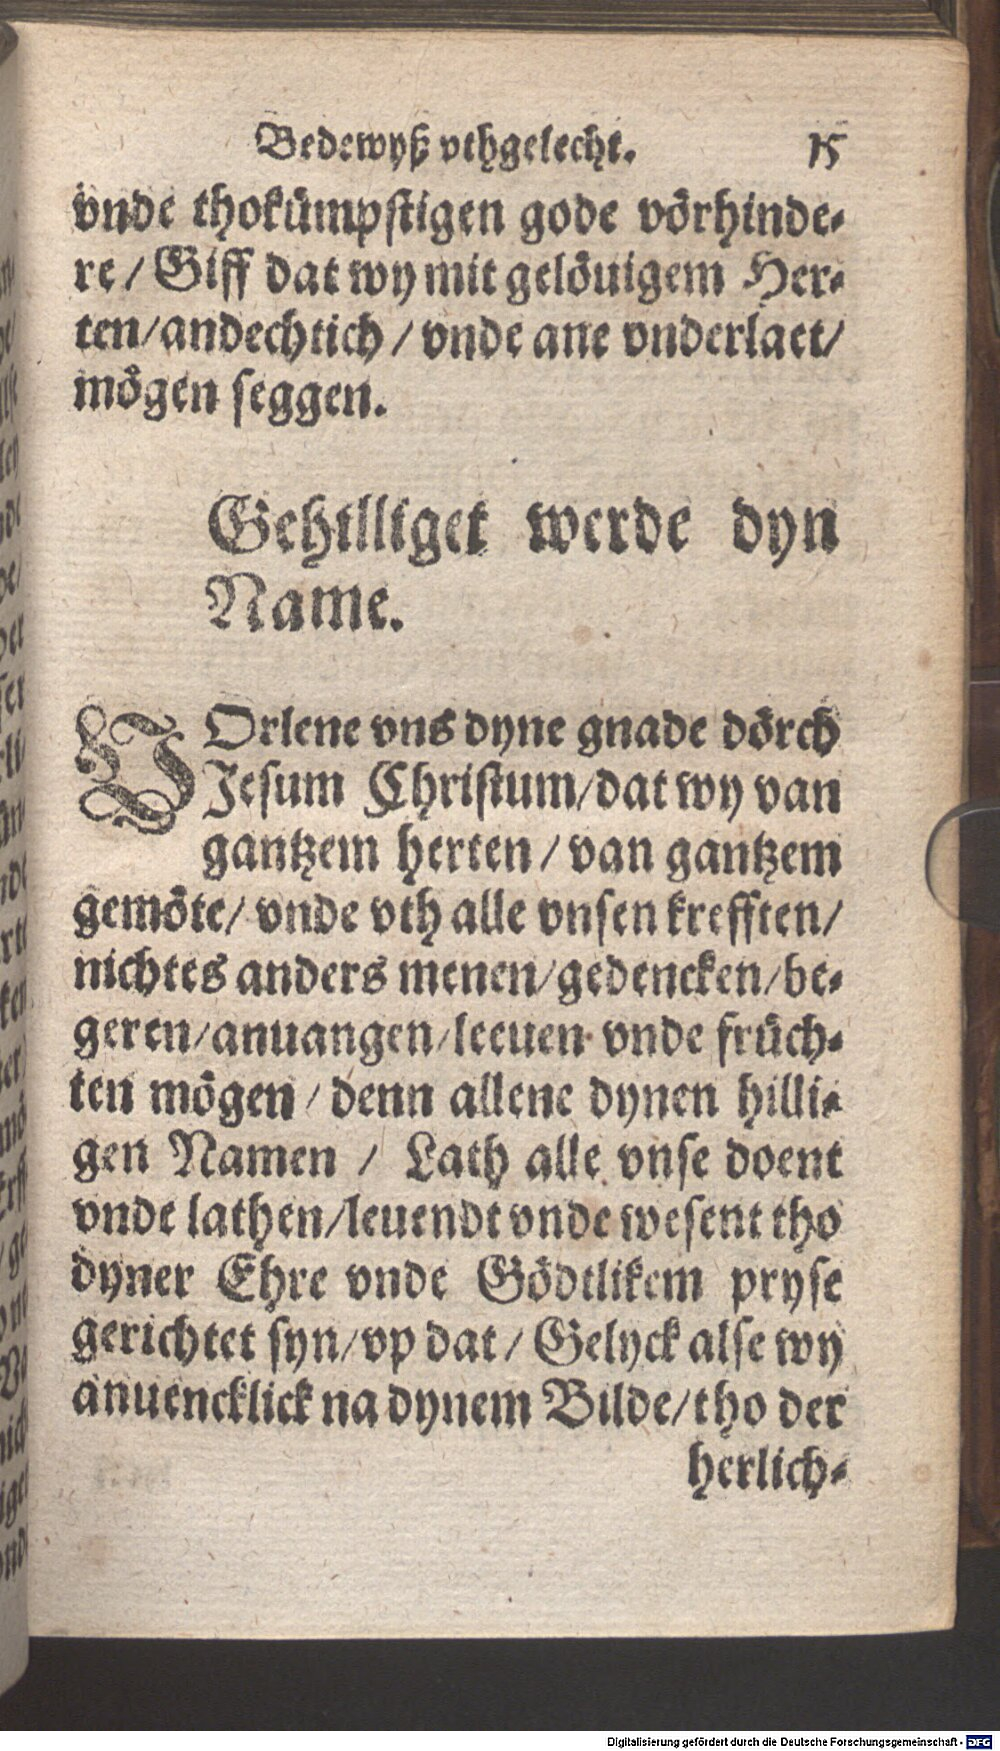 Bedewyß vthgelecht. 15
vnde thokümpstigen gode vörhinde-
re / Giff dat wy mit gelöuigem Her-
ten/andechtich / vnde ane vnderlaet/
mögen seggen.
Gehilliget werde dyn
Name.
VOrlene vns dyne gnade dörch
Jesum Christum/dat wy van
gantzem herten / van gantzem
gemöte/ vnde vth alle vnsen krefften/
nichtes anders menen/gedencken/be-
geren/anuangen/leeuen vnde früch-
ten mögen / denn allene dynen hilli-
gen Namen / Lath alle vnse doent
vnde lathen/leuendt vnde wesent tho
dyner Ehre vnde Gödtlikem pryse
gerichtet syn/vp dat / Gelyck alse wy
anuencklick na dynem Bilde/tho der
herlich-
Digitalisierung gefördert durch die Deutsche Forschungsgemeinschaft - DFG